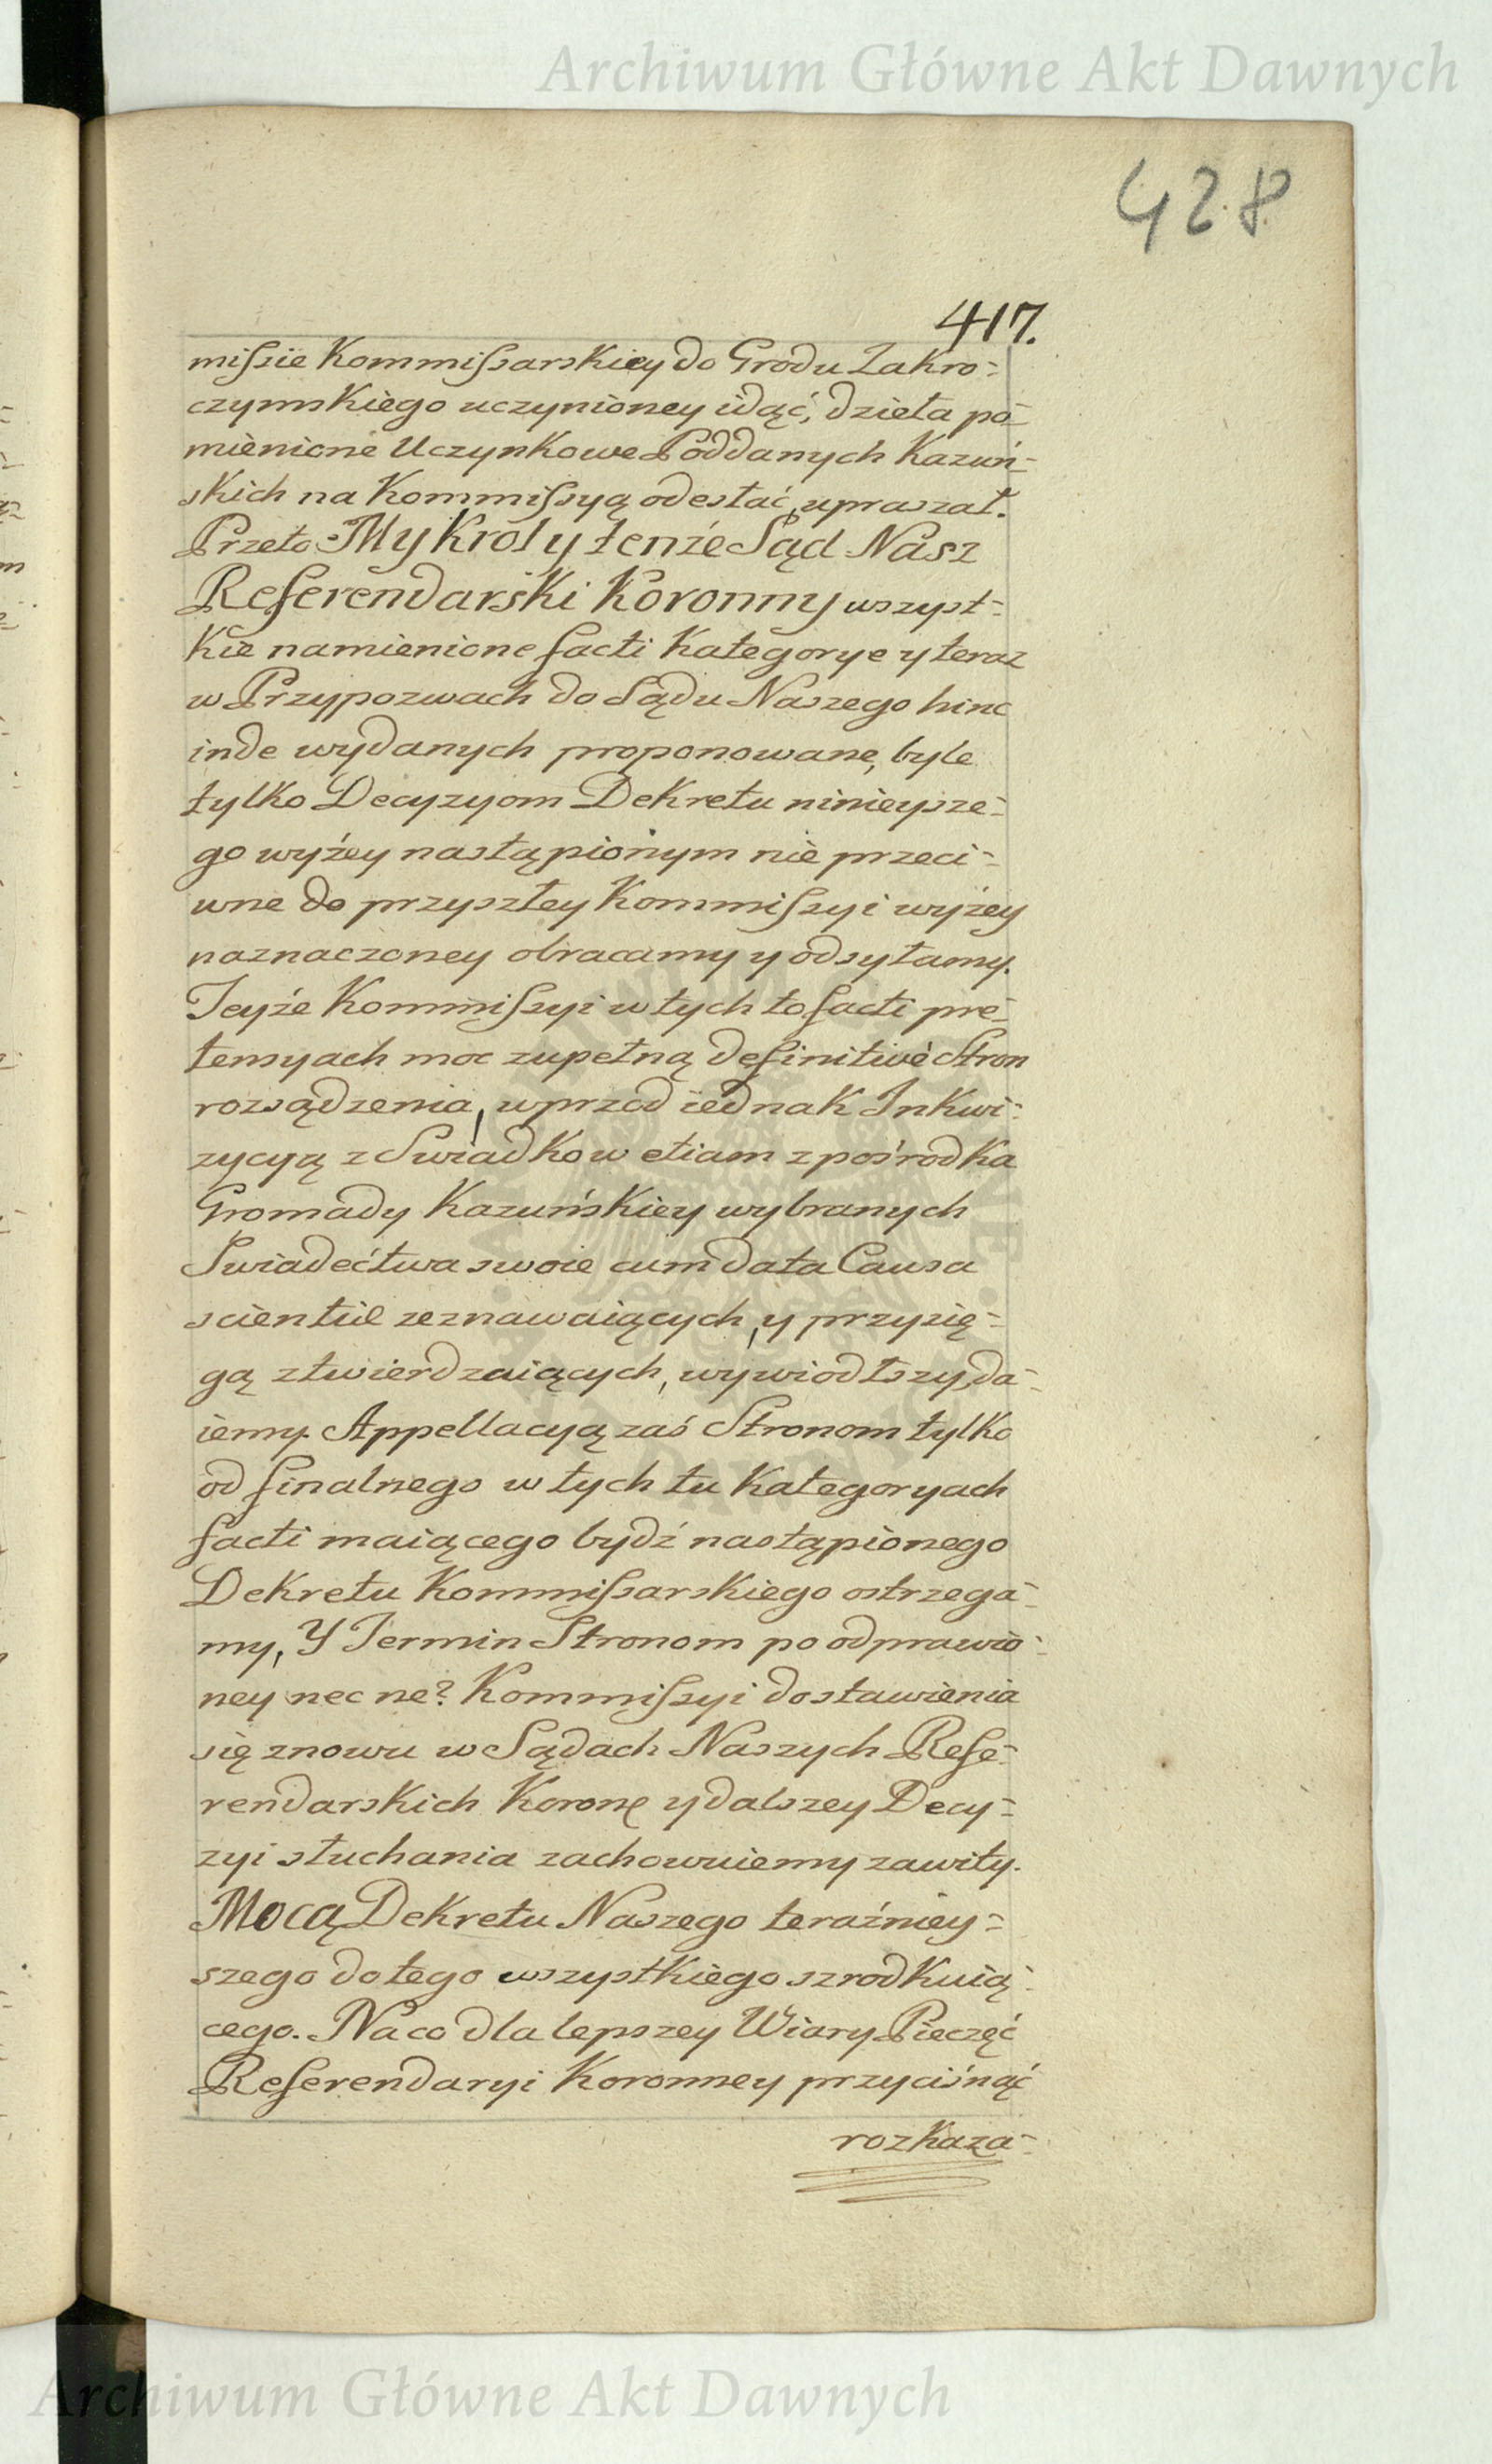 Archiwum Główne Akt Dawnych
428
417.
missie Kommissarskiey do Grodu Zakro=
czymskiego uczynioney idąć, dzieła po=
mienione Uczynkowe Poddanych Kazuń=
skich na Kommissyą odesłać upraszał.
Przeto My Krol y tenże Sąd Nasz
Referendarski Koronny wszyst=
kie namienione facti Kategorye y teraz
w Przypozwach do Sądu Naszego hinc
inde wydanych proponowane, byle
tylko Decyzyom Dekretu ninieysze=
go wyżey nastąpionym nie przeci=
wne do przyszłey Kommissyi wyżey
naznaczoney obracamy y odsyłamy.
Teyże Kommissyi w tych to facti pre=
tensyach moc zupełną definitivè Stron
rozsądzenia, wprzod iednak Inkwi=
zycyą z Swiadkow etiam z pośrodka
Gromady Kazuńskiey wybranych
Swiadećtwa swoie cum data Causa
scientiæ zeznawaiących, y przysię=
gą ztwierdzaiących, wywiodłszy, da=
iemy. Appellacyą zaś Stronom tylko
od finalnego w tych tu Kategoryach
facti maiącego bydź nastąpionego
Dekretu Kommissarskiego ostrzega=
my, Y Termin Stronom po odprawio=
ney nec ne? Kommissyi dostawienia
się znowu w Sądach Naszych Refe=
rendarskich Koronę y dalszey Decy=
zyi słuchania zachowuiemy zawity.
Mocą Dekretu Naszego teraźniey=
szego do tego wszystkiego szrodkuią=
cego. Na co dla lepszey Wiary Pieczęć
Referendaryi Koronney przycisnąć
rozkaza=
Archiwum Główne Akt Dawnych